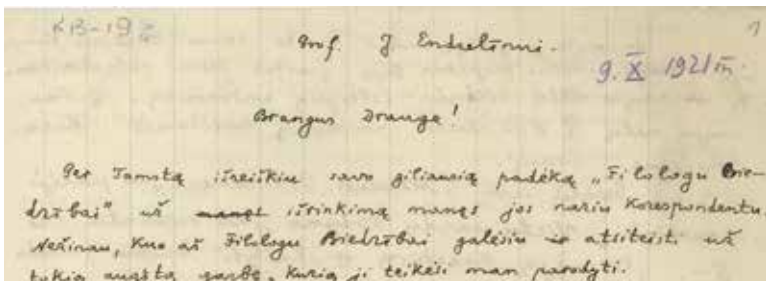 KB-192
1
Prof. J Endzelīnui.
9. X 1921 m.
Brangus Drauge!
Per Tamstą išreiškiu savo giliausią padėką „Filologu Bie-
dribai" už išrinkimą manęs jos nariu Korespondentu.
Nežinau, kuo aš Filologu Biedrībai galėsiu atsiteisti už
tokią augštą garbę, kurią ji teikėsi man parodyti.